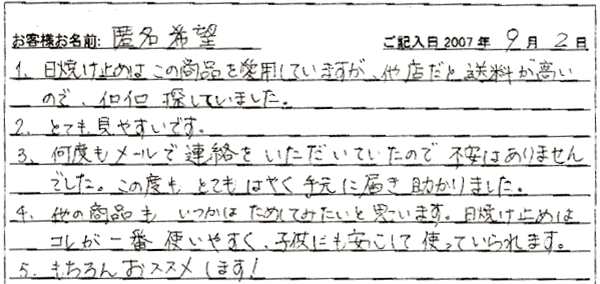 お客様お名前: 匿名希望 ご記入日2007年 9月 2日
1、日焼け止めはこの商品を愛用していますが、他店だと送料が高い
ので、イロイロ探していました。
2、とても見やすいです。
3、何度もメールで連絡をいただいていたので不安はありません
でした。この度もとてもはやく手元に届き助かりました。
4、他の商品もいつかはためしてみたいと思います。日焼け止めは
コレが一番使いやすく、子供にも安心して使っていられます。
5、もちろんおススメします!